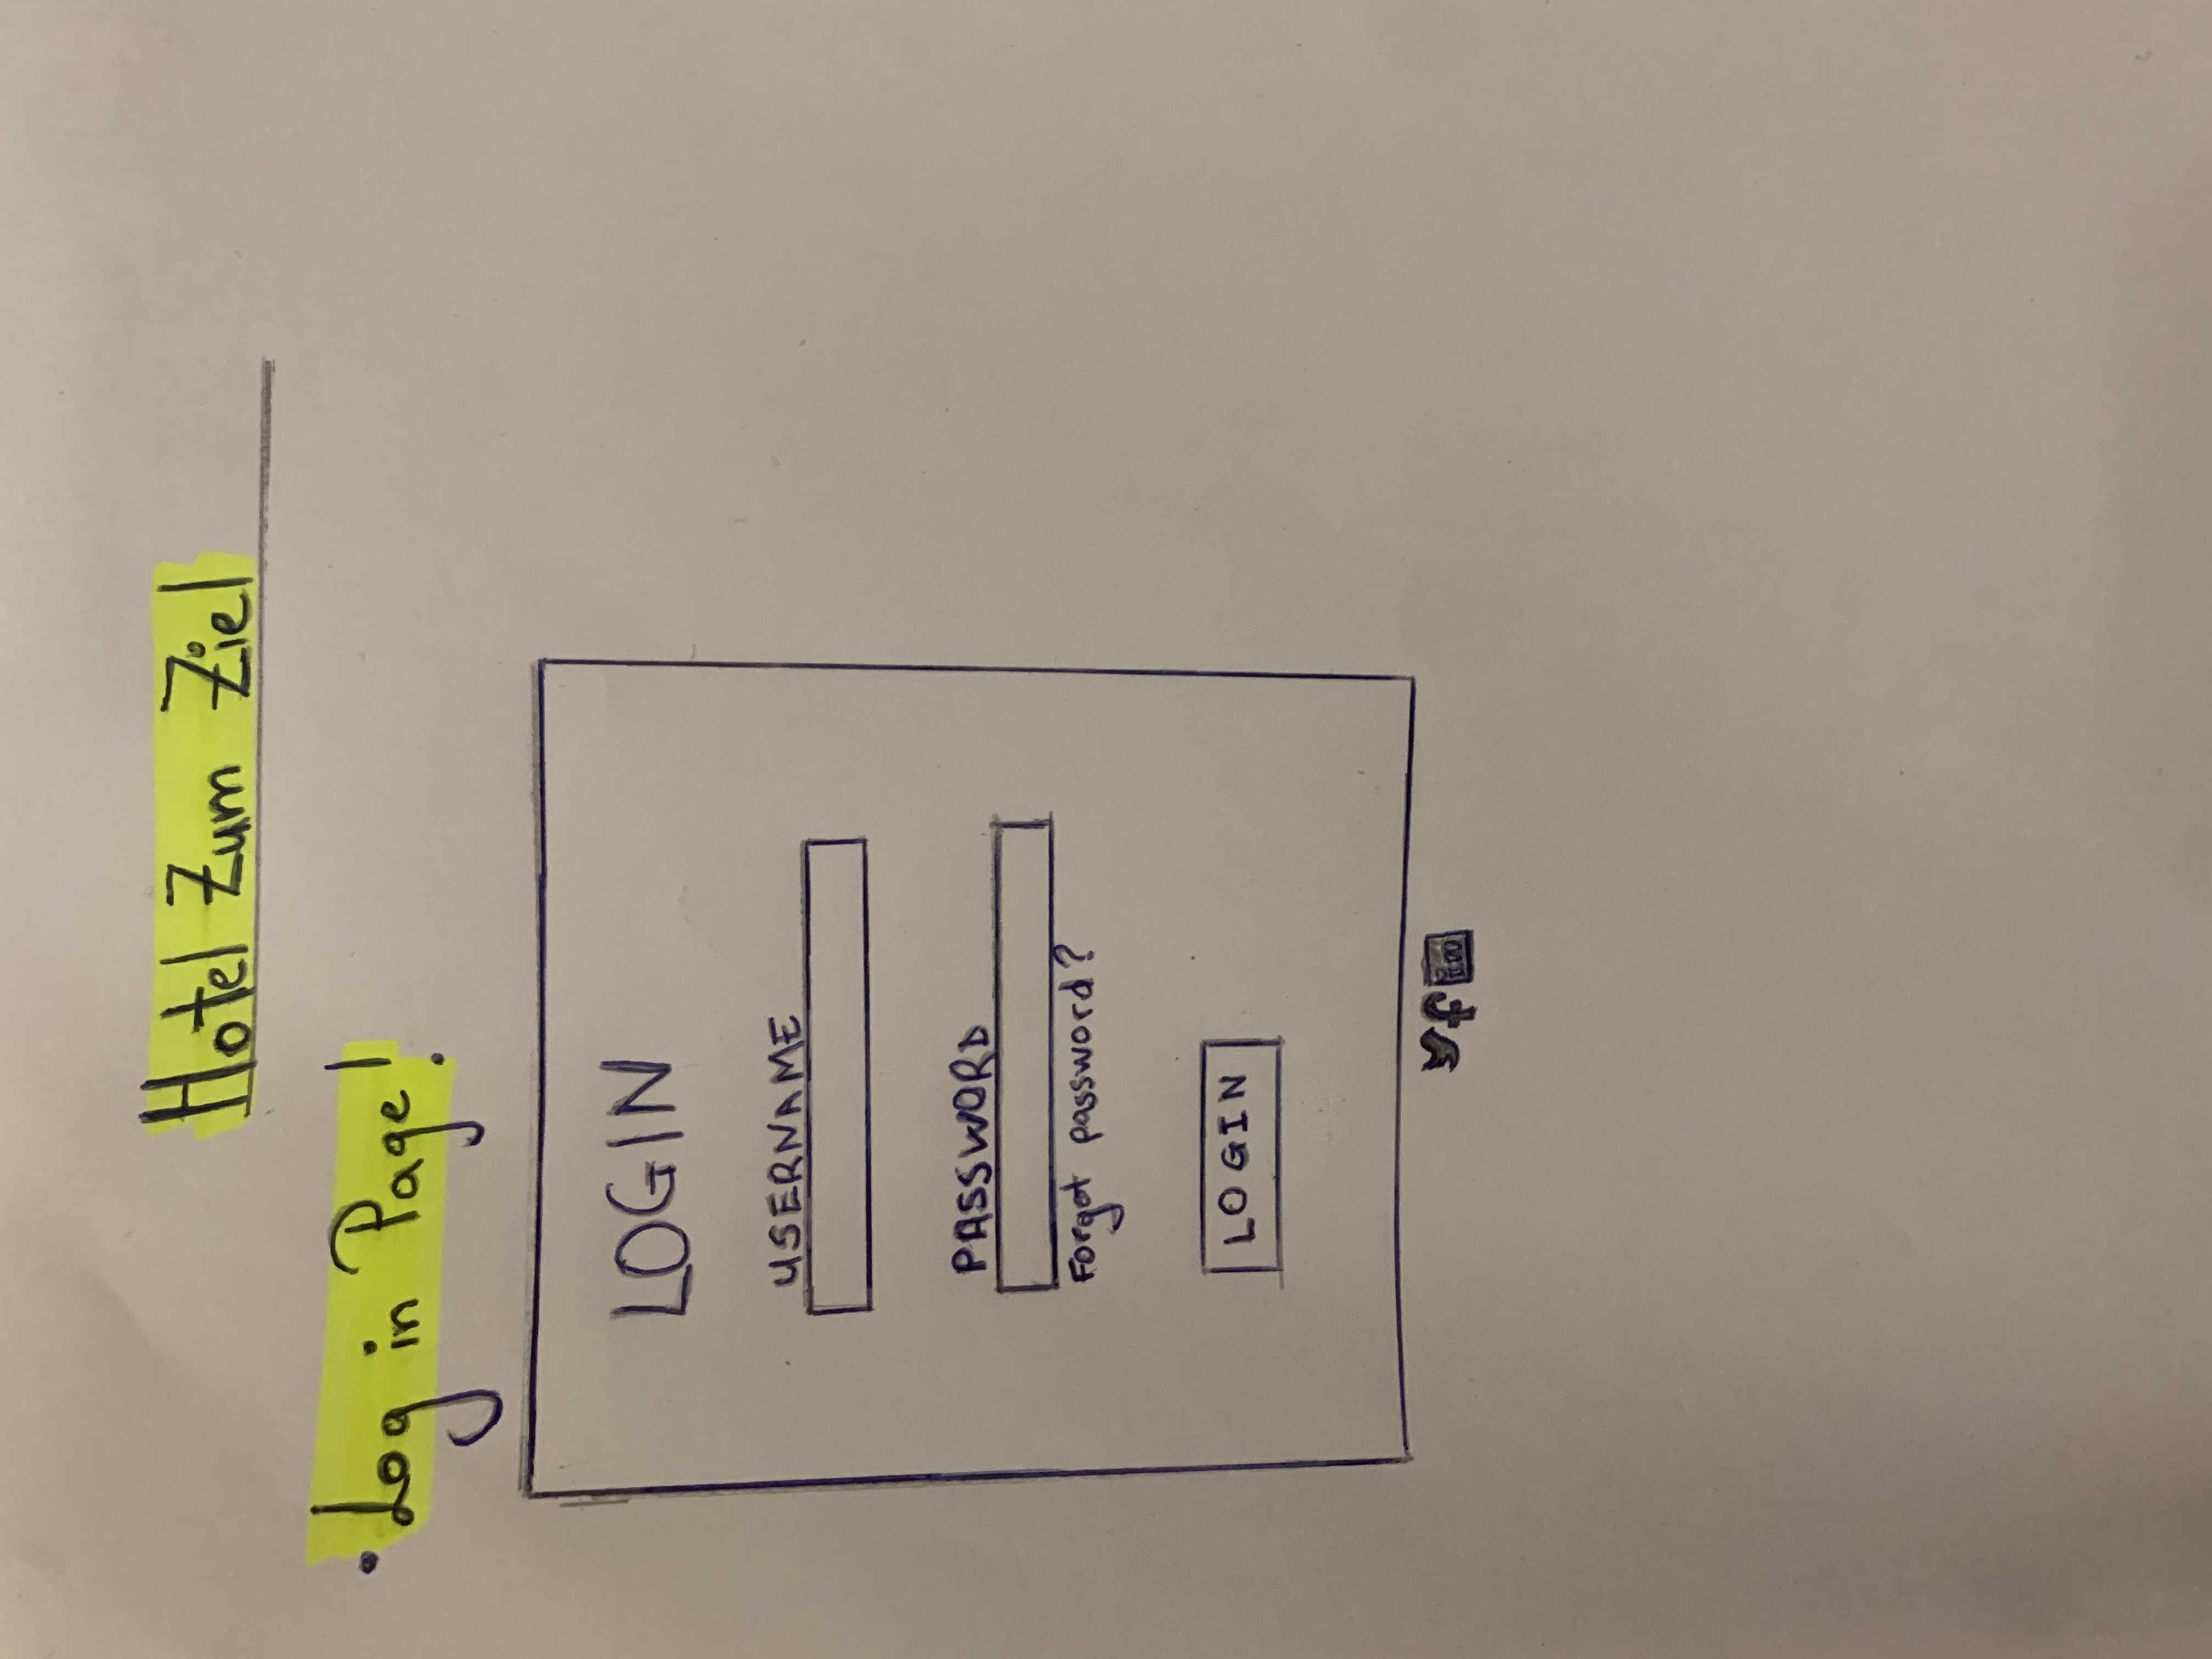 Hotel Zum Ziel
• Log in Page!
LOGIN
USERNAME
PASSWORD
Forgot password?
LOGIN
f